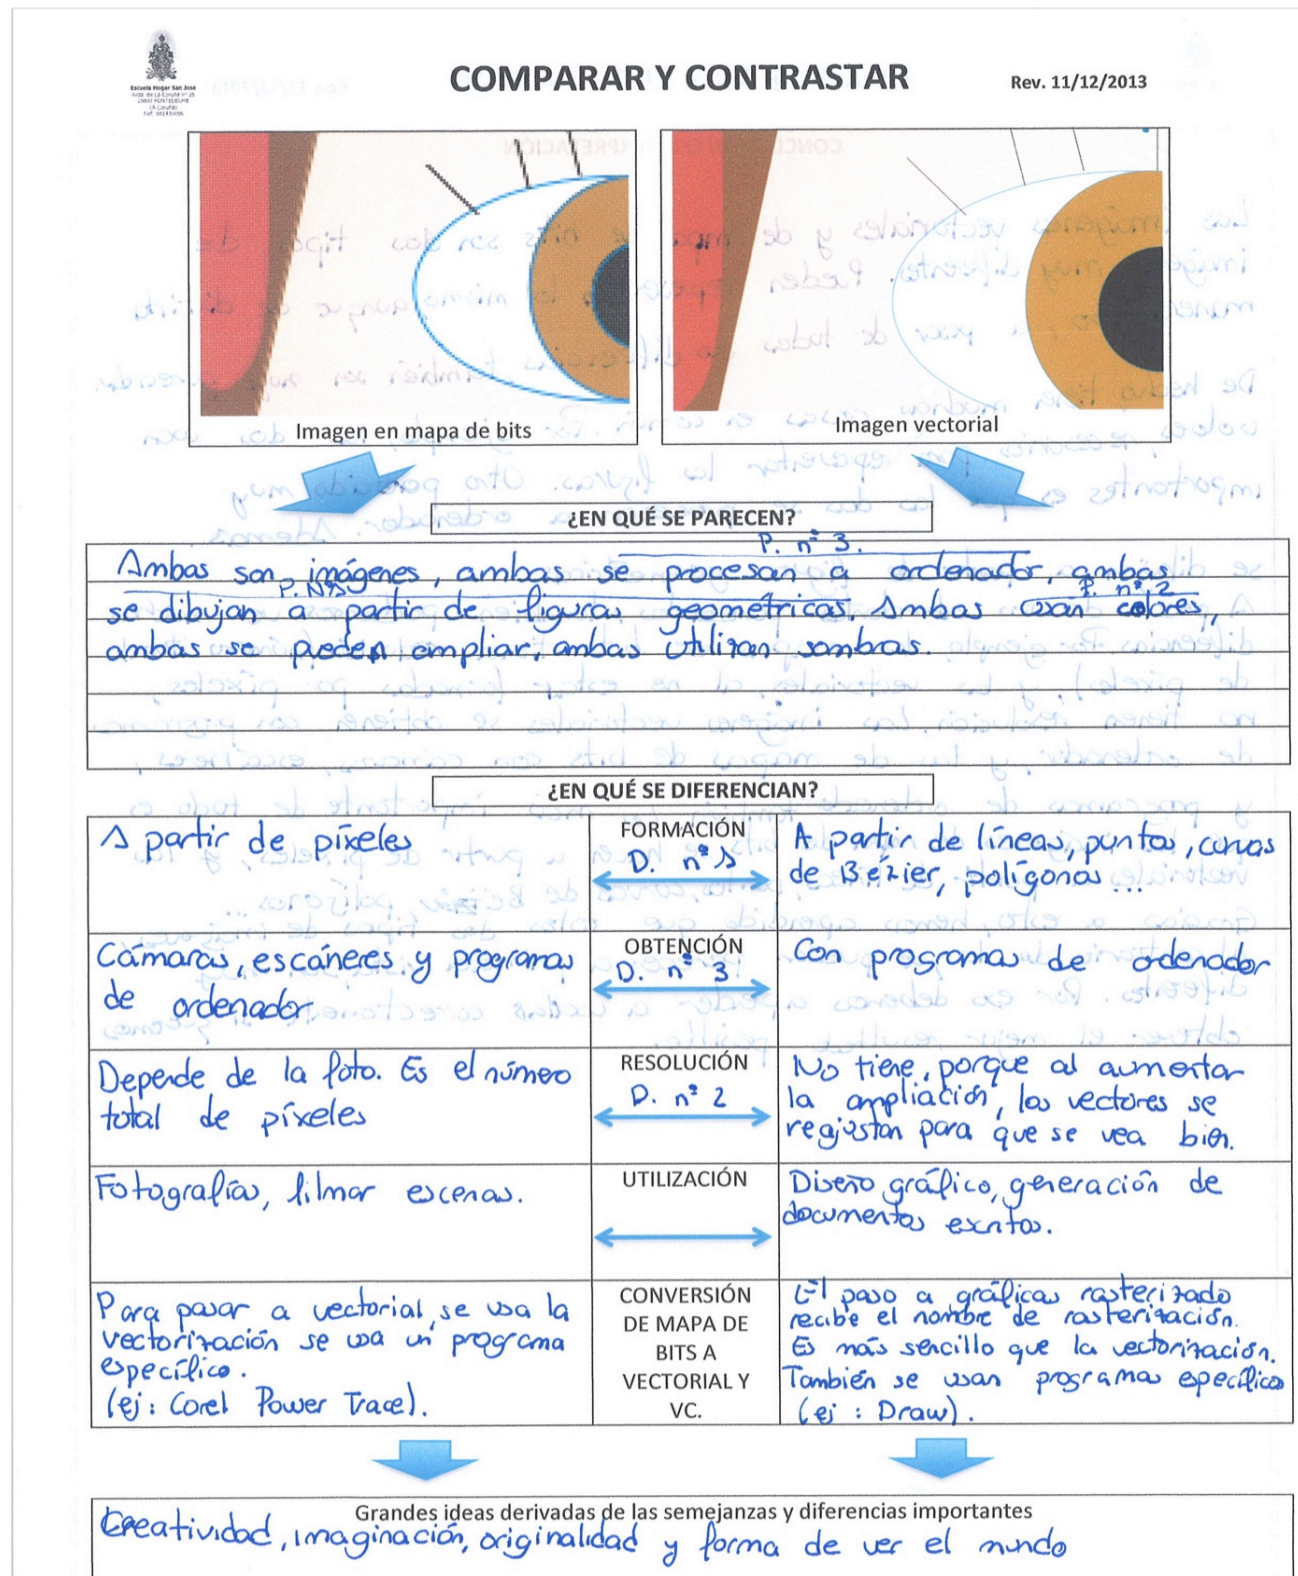 Escuela Hogar San José
Avda. de La Coruña nº 25
15600 PONTEDEUME
(A Coruña)
COMPARAR Y CONTRASTAR
Rev. 11/12/2013
Imagen en mapa de bits
Imagen vectorial
¿EN QUÉ SE PARECEN?
P. nº 3.
Ambas son imágenes, ambas se procesan a ordenador, ambas
P. Nº1
P. nº 2
se dibujan a partir de figuras geométricas. Ambas usan colores,
ambas se pueden ampliar, ambas utilizan sombras.
¿EN QUÉ SE DIFERENCIAN?
A partir de píxeles
FORMACIÓN
D. nº 1
A partir de líneas, puntos, curvas
de Bézier, polígonos ...
Cámaras, escáneres y programas
de ordenador
OBTENCIÓN
D. nº 3
Con programas de ordenador
Depende de la foto. Es el número
total de píxeles
RESOLUCIÓN
D. nº 2
No tiene, porque al aumentar
la ampliación, los vectores se
reajustan para que se vea bien.
Fotografías, filmar escenas.
UTILIZACIÓN
Diseño gráfico, generación de
documentos escritos.
Para pasar a vectorial, se usa la
vectorización se usa un programa
específico.
(ej: Corel Power Trace).
CONVERSIÓN
DE MAPA DE
BITS A
VECTORIAL Y
VC.
El paso a gráficos rasterizado
recibe el nombre de rasterización.
Es más sencillo que la vectorización.
También se usan programas específicos
(ej: Draw).
Grandes ideas derivadas de las semejanzas y diferencias importantes
Creatividad, imaginación, originalidad y forma de ver el mundo